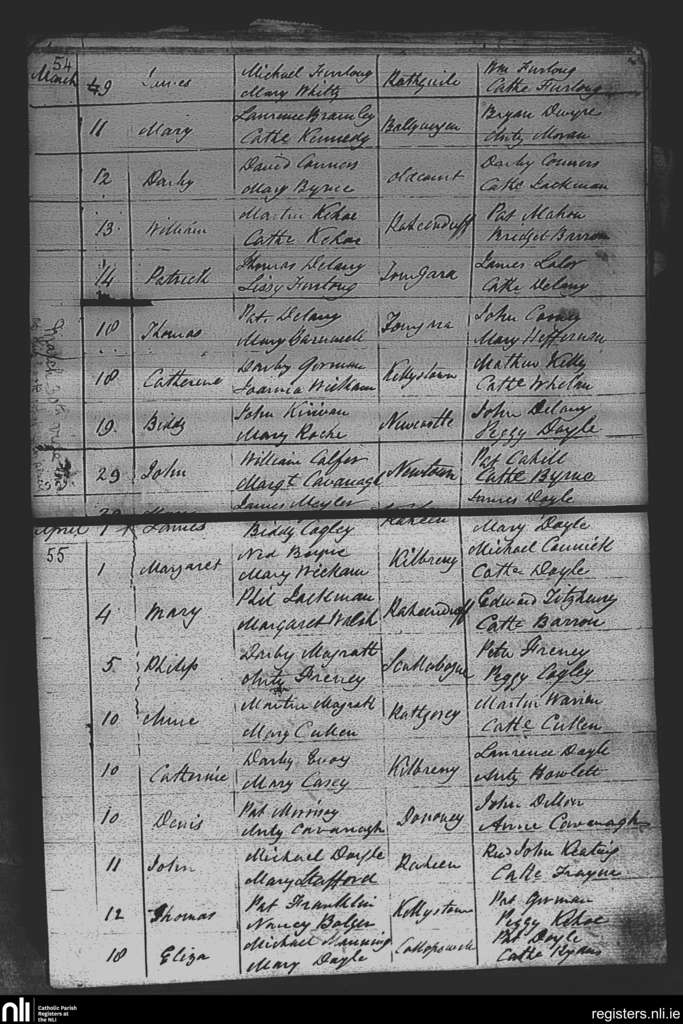 54
March
49 James Michael Furlong Rathguile Wm Furlong
Mary Whitty Cathe Furlong
11 Mary Laurence Bramley Ballyweyen Bryan Dwyre
Cathe Kennedy Anty Moran
12 Darby David Connors Oldcourt Darby Connors
Mary Byrne Cathe Lackman
13 William Martin Kehoe Raheenduff Pat Mahon
Cathe Kehoe Bridget Barron
14 Patrick Thomas Delany James Lalor
Lissy Furlong Cathe Delany
18 Thomas Pat. Delany John
Mary Mary Heffernan
18 Catherine Darby Gorman Kellystown Mathew Kelly
Joanna Wickham Cathe Whelan
19 Biddy John Kirivan Newcastle John Delany
Mary Roche Peggy Doyle
29 John William Calfer Newtown Pat Cahill
Margt Cavanagh Cathe Byrne
James Meyler James Doyle
April James Biddy Cogley Raheen Mary Doyle
55
1 Margaret Ned Byrne Kilbreny Michael Cormick
Mary Wickam Cathe Doyle
4 Mary Phil Lackman Raheenduff Edward Fitzhenry
Margaret Walsh Cathe Barron
5 Philip Darby Magrath Scullabogue Peter Freney
Anty Freney Peggy Cogley
10 Anne Martin Magrath Rathgorey Martin Warren
Mary Cullen Cathe Cullen
10 Catherine Darby Evoy Kilbreny Laurence Doyle
Mary Casey Anty Howlett
10 Denis Pat Morrisey Dononey John Dillon
Anty Cavanagh Anne Cavanagh
11 John Michael Doyle Raheen Revd John Keating
Mary Stafford Cathe Frayne
12 Thomas Pat Franklin Kellystown Pat Gorman
Nancy Bolger Peggy Kehoe
18 Eliza Michael Manning Pat Doyle
Mary Doyle Cathe
nli Catholic Parish
Registers at
the NLI
registers.nli.ie